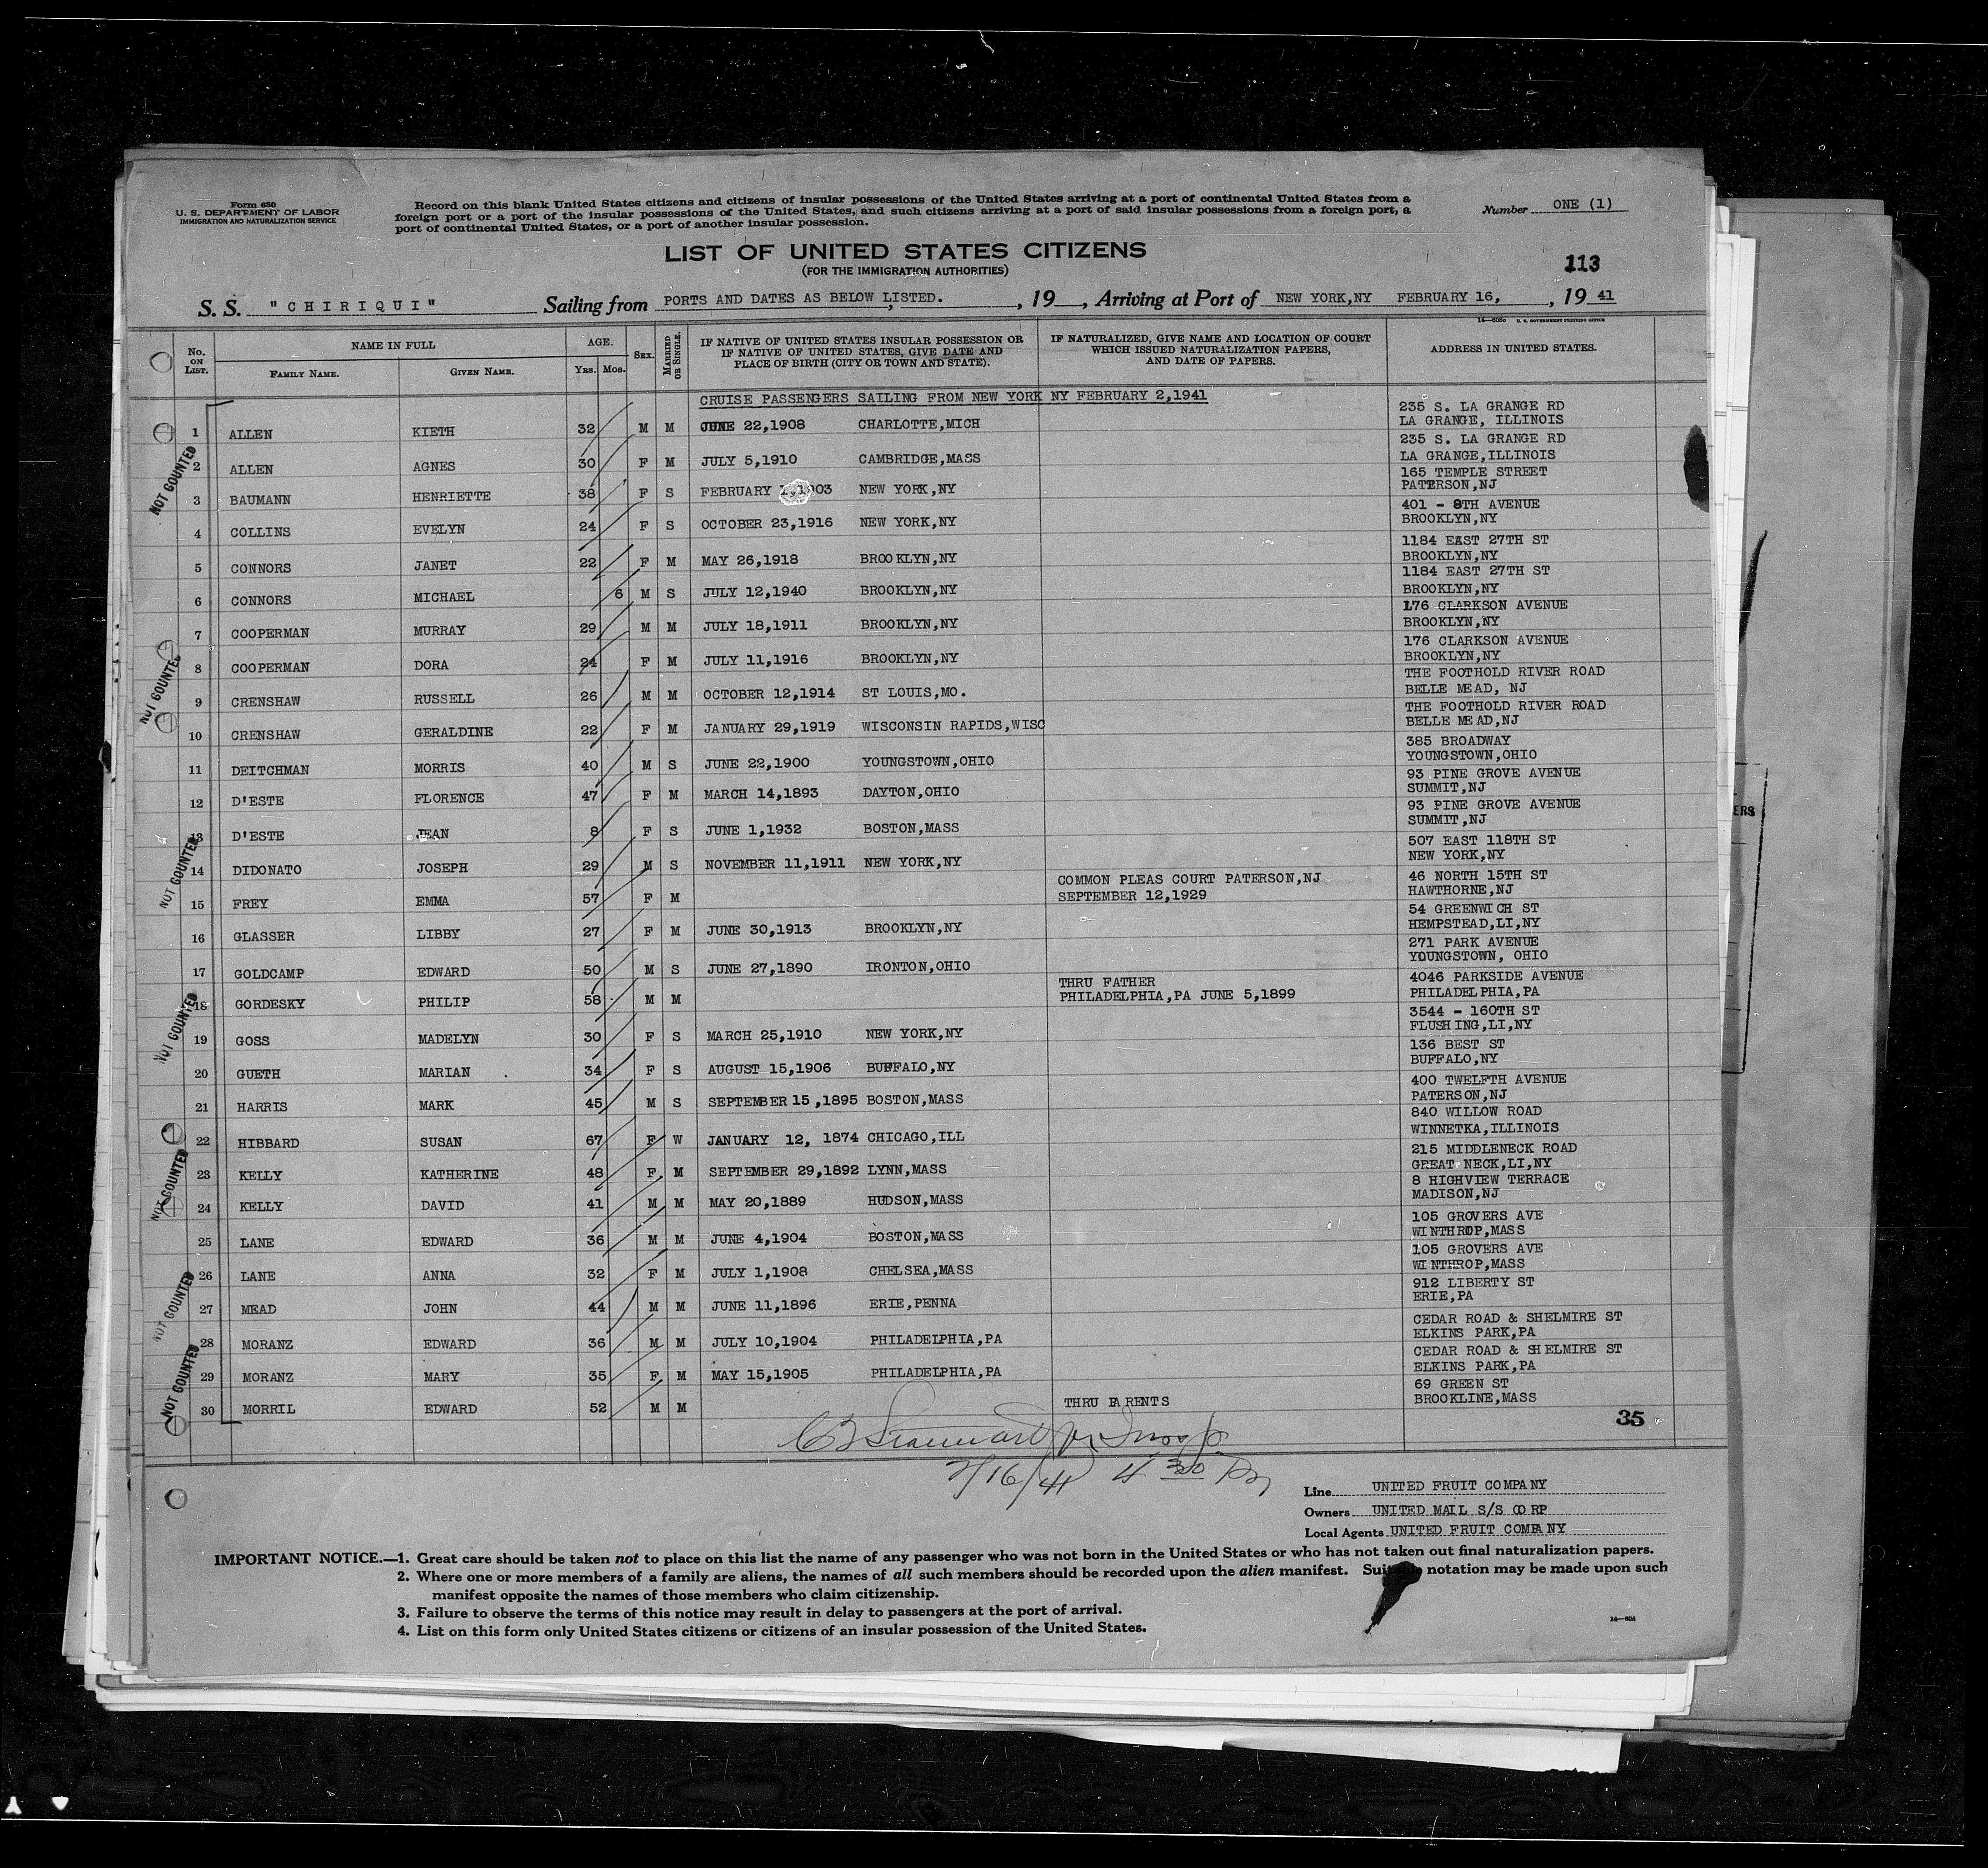 Form 630
U. S. DEPARTMENT OF LABOR
IMMIGRATION AND NATURALIZATION SERVICE
Record on this blank United States citizens and citizens of insular possessions of the United States arriving at a port of continental United States from a
foreign port or a port of the insular possessions of the United States, and such citizens arriving at a port of said insular possessions from a foreign port, a
port of continental United States, or a port of another insular possession.
Number ONE (1)
LIST OF UNITED STATES CITIZENS
(FOR THE IMMIGRATION AUTHORITIES)
113
S. S. "CHIRIQUI" Sailing from PORTS AND DATES AS BELOW LISTED. , 19 , Arriving at Port of NEW YORK,NY FEBRUARY 16, , 19 41
U. S. GOVERNMENT PRINTING OFFICE
No. ON LIST. NAME IN FULL AGE. SEX. MARRIED OR SINGLE. IF NATIVE OF UNITED STATES INSULAR POSSESSION OR IF NATIVE OF UNITED STATES, GIVE DATE AND PLACE OF BIRTH (CITY OR TOWN AND STATE). IF NATURALIZED, GIVE NAME AND LOCATION OF COURT WHICH ISSUED NATURALIZATION PAPERS, AND DATE OF PAPERS. ADDRESS IN UNITED STATES.
FAMILY NAME. GIVEN NAME. YRS. MOS.
CRUISE PASSENGERS SAILING FROM NEW YORK NY FEBRUARY 2,1941
1 ALLEN KIETH 32 M M JUNE 22,1908 CHARLOTTE,MICH 235 S. LA GRANGE RD LA GRANGE, ILLINOIS
2 ALLEN AGNES 30 F M JULY 5,1910 CAMBRIDGE,MASS 235 S. LA GRANGE RD LA GRANGE,ILLINOIS
3 BAUMANN HENRIETTE 38 F S FEBRUARY 1903 NEW YORK,NY 165 TEMPLE STREET PATERSON,NJ
4 COLLINS EVELYN 24 F S OCTOBER 23,1916 NEW YORK,NY 401 - 8TH AVENUE BROOKLYN,NY
5 CONNORS JANET 22 F M MAY 26,1918 BROOKLYN,NY 1184 EAST 27TH ST BROOKLYN,NY
6 CONNORS MICHAEL 6 M S JULY 12,1940 BROOKLYN,NY 1184 EAST 27TH ST BROOKLYN,NY
7 COOPERMAN MURRAY 29 M M JULY 18,1911 BROOKLYN,NY 176 CLARKSON AVENUE BROOKLYN,NY
8 COOPERMAN DORA 24 F M JULY 11,1916 BROOKLYN,NY 176 CLARKSON AVENUE BROOKLYN,NY
9 CRENSHAW RUSSELL 26 M M OCTOBER 12,1914 ST LOUIS,MO. THE FOOTHOLD RIVER ROAD BELLE MEAD, NJ
10 CRENSHAW GERALDINE 22 F M JANUARY 29,1919 WISCONSIN RAPIDS,WISC THE FOOTHOLD RIVER ROAD BELLE MEAD,NJ
11 DEITCHMAN MORRIS 40 M S JUNE 22,1900 YOUNGSTOWN,OHIO 385 BROADWAY YOUNGSTOWN,OHIO
12 D'ESTE FLORENCE 47 F M MARCH 14,1893 DAYTON,OHIO 93 PINE GROVE AVENUE SUMMIT,NJ
13 D'ESTE JEAN 8 F S JUNE 1,1932 BOSTON,MASS 93 PINE GROVE AVENUE SUMMIT,NJ
14 DIDONATO JOSEPH 29 M S NOVEMBER 11,1911 NEW YORK,NY 507 EAST 118TH ST NEW YORK,NY
15 FREY EMMA 57 F M COMMON PLEAS COURT PATERSON,NJ SEPTEMBER 12,1929 46 NORTH 15TH ST HAWTHORNE,NJ
16 GLASSER LIBBY 27 F M JUNE 30,1913 BROOKLYN,NY 54 GREENWICH ST HEMPSTEAD,LI,NY
17 GOLDCAMP EDWARD 50 M S JUNE 27,1890 IRONTON,OHIO 271 PARK AVENUE YOUNGSTOWN, OHIO
18 GORDESKY PHILIP 58 M M THRU FATHER PHILADELPHIA,PA JUNE 5,1899 4046 PARKSIDE AVENUE PHILADELPHIA,PA
19 GOSS MADELYN 30 F S MARCH 25,1910 NEW YORK,NY 3544 - 160TH ST FLUSHING,LI,NY
20 GUETH MARIAN 34 F S AUGUST 15,1906 BUFFALO,NY 136 BEST ST BUFFALO,NY
21 HARRIS MARK 45 M S SEPTEMBER 15,1895 BOSTON,MASS 400 TWELFTH AVENUE PATERSON,NJ
22 HIBBARD SUSAN 67 F W JANUARY 12, 1874 CHICAGO,ILL 840 WILLOW ROAD WINNETKA,ILLINOIS
23 KELLY KATHERINE 48 F M SEPTEMBER 29,1892 LYNN,MASS 215 MIDDLENECK ROAD GREAT NECK,LI,NY
24 KELLY DAVID 41 M M MAY 20,1889 HUDSON,MASS 8 HIGHVIEW TERRACE MADISON,NJ
25 LANE EDWARD 36 M M JUNE 4,1904 BOSTON,MASS 105 GROVERS AVE WINTHROP,MASS
26 LANE ANNA 32 F M JULY 1,1908 CHELSEA,MASS 105 GROVERS AVE WINTHROP,MASS
27 MEAD JOHN 44 M M JUNE 11,1896 ERIE,PENNA 912 LIBERTY ST ERIE,PA
28 MORANZ EDWARD 36 M M JULY 10,1904 PHILADELPHIA,PA CEDAR ROAD & SHELMIRE ST ELKINS PARK,PA
29 MORANZ MARY 35 F M MAY 15,1905 PHILADELPHIA,PA CEDAR ROAD & SHELMIRE ST ELKINS PARK,PA
30 MORRIL EDWARD 52 M M THRU PARENTS 69 GREEN ST BROOKLINE,MASS
NOT COUNTED
NOT COUNTED
NOT COUNTED
NOT COUNTED
NOT COUNTED
NOT COUNTED
NOT COUNTED
35
2/16/41 4 30 PM
Line UNITED FRUIT COMPANY
Owners UNITED MAIL S/S CORP
Local Agents UNITED FRUIT COMPANY
IMPORTANT NOTICE.—1. Great care should be taken not to place on this list the name of any passenger who was not born in the United States or who has not taken out final naturalization papers.
2. Where one or more members of a family are aliens, the names of all such members should be recorded upon the alien manifest. Suitable notation may be made upon such
manifest opposite the names of those members who claim citizenship.
3. Failure to observe the terms of this notice may result in delay to passengers at the port of arrival.
4. List on this form only United States citizens or citizens of an insular possession of the United States.
ERS